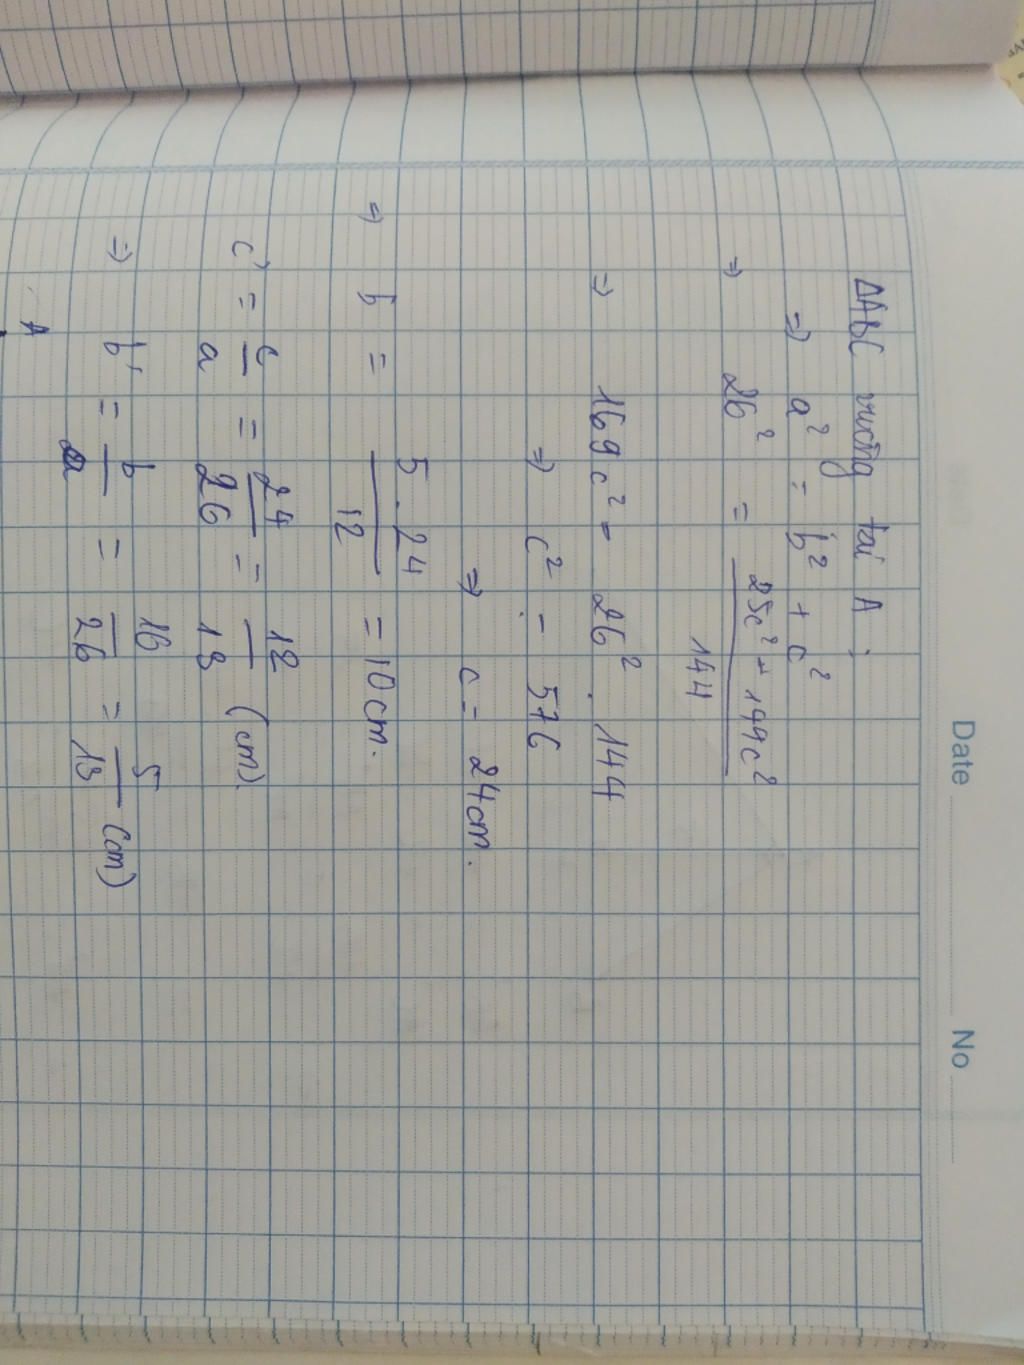 Date No
ΔABC vuông tại A:
⇒ a² = b² + c²
⇒ 26² = 25c² + 144c² / 144
⇒ 169c² = 26² . 144
⇒ c² = 576
⇒ c = 24cm.
⇒ b = 5.24 / 12 = 10cm.
c' = c/a = 24/26 = 12/13 (cm).
⇒ b' = b/a = 16/26 = 5/13 (cm)
A